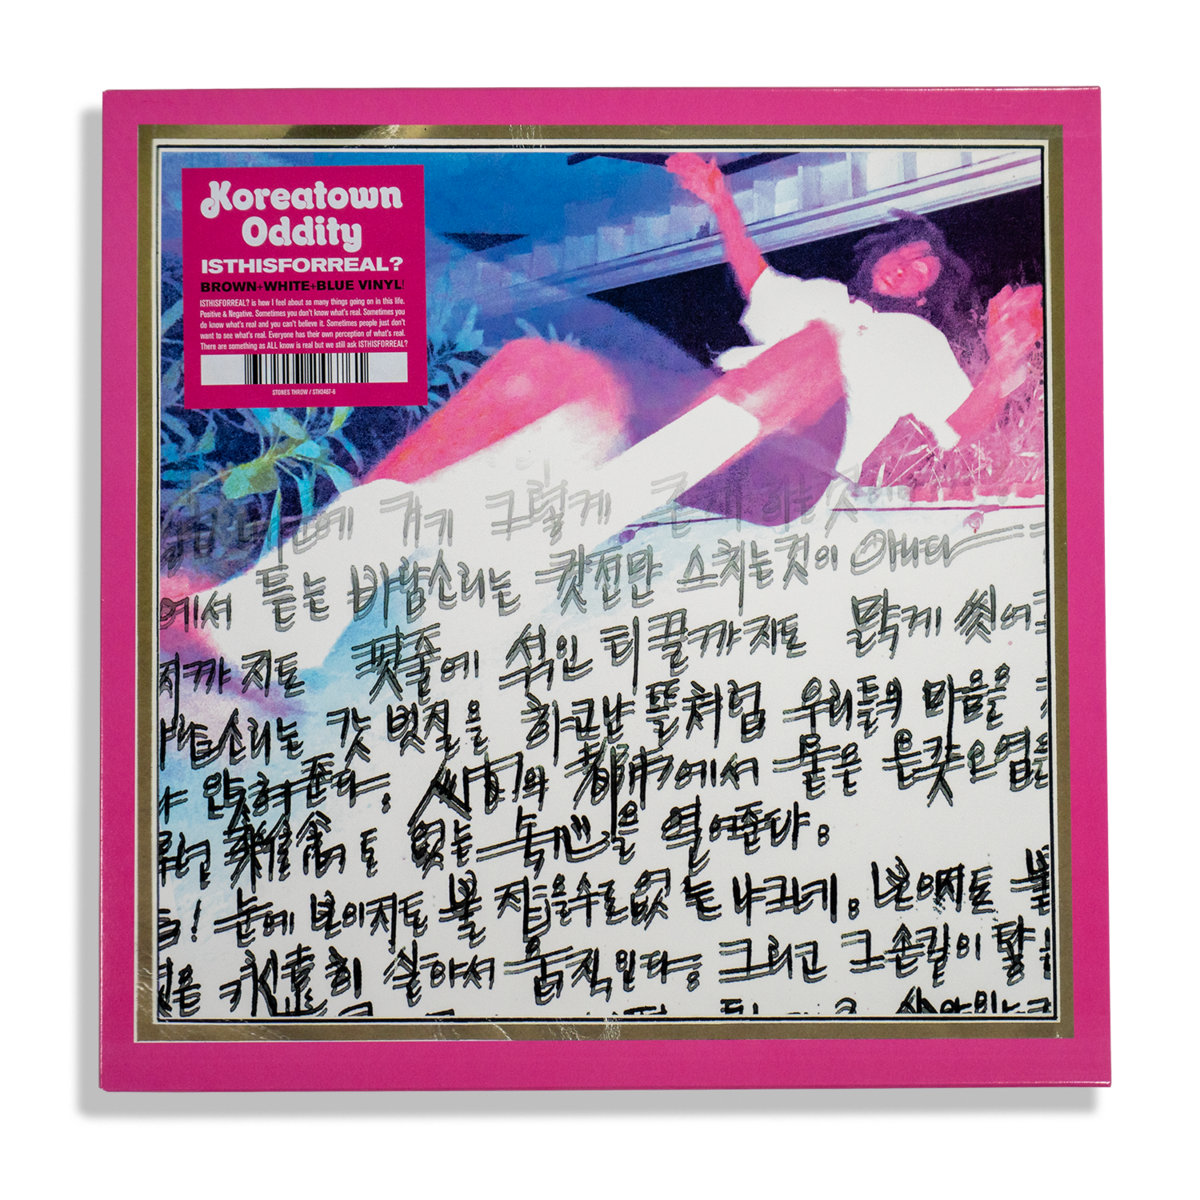 Koreatown
Oddity
ISTHISFORREAL?
BROWN+WHITE+BLUE VINYL!
ISTHISFORREAL? is how I feel about so many things going on in this life.
Positive & Negative. Sometimes you don't know what's real. Sometimes you
do know what's real and you can't believe it. Sometimes people just don't
want to see what's real. Everyone has their own perception of what's real.
There are something as ALL know is real but we still ask ISTHISFORREAL?
STONES THROW / STH2487-6
에 거기 그렇게 존재하는것
에서 듣는 바람소리는 스치는것이 아니다
지까지도 핏줄에 섞인 티끌까지도 맑게 씻어
소리는 갓 빗질을 하고난 뜰처럼 우리들의 마음을
준다. 에서 묻은 온갖 오염을
도 없는 을 열어준다.
! 눈에 보이지도 붙잡을수도 없는 나그네. 보이지도
히 살아서 움직인다. 그리고 그 손길이 닿는